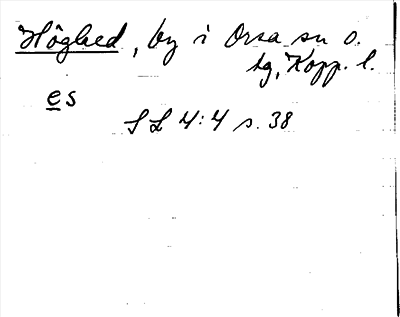 Högbed, by i Orsa sn o.
tg, Kopp. l.
es
SL 4:4 s. 38